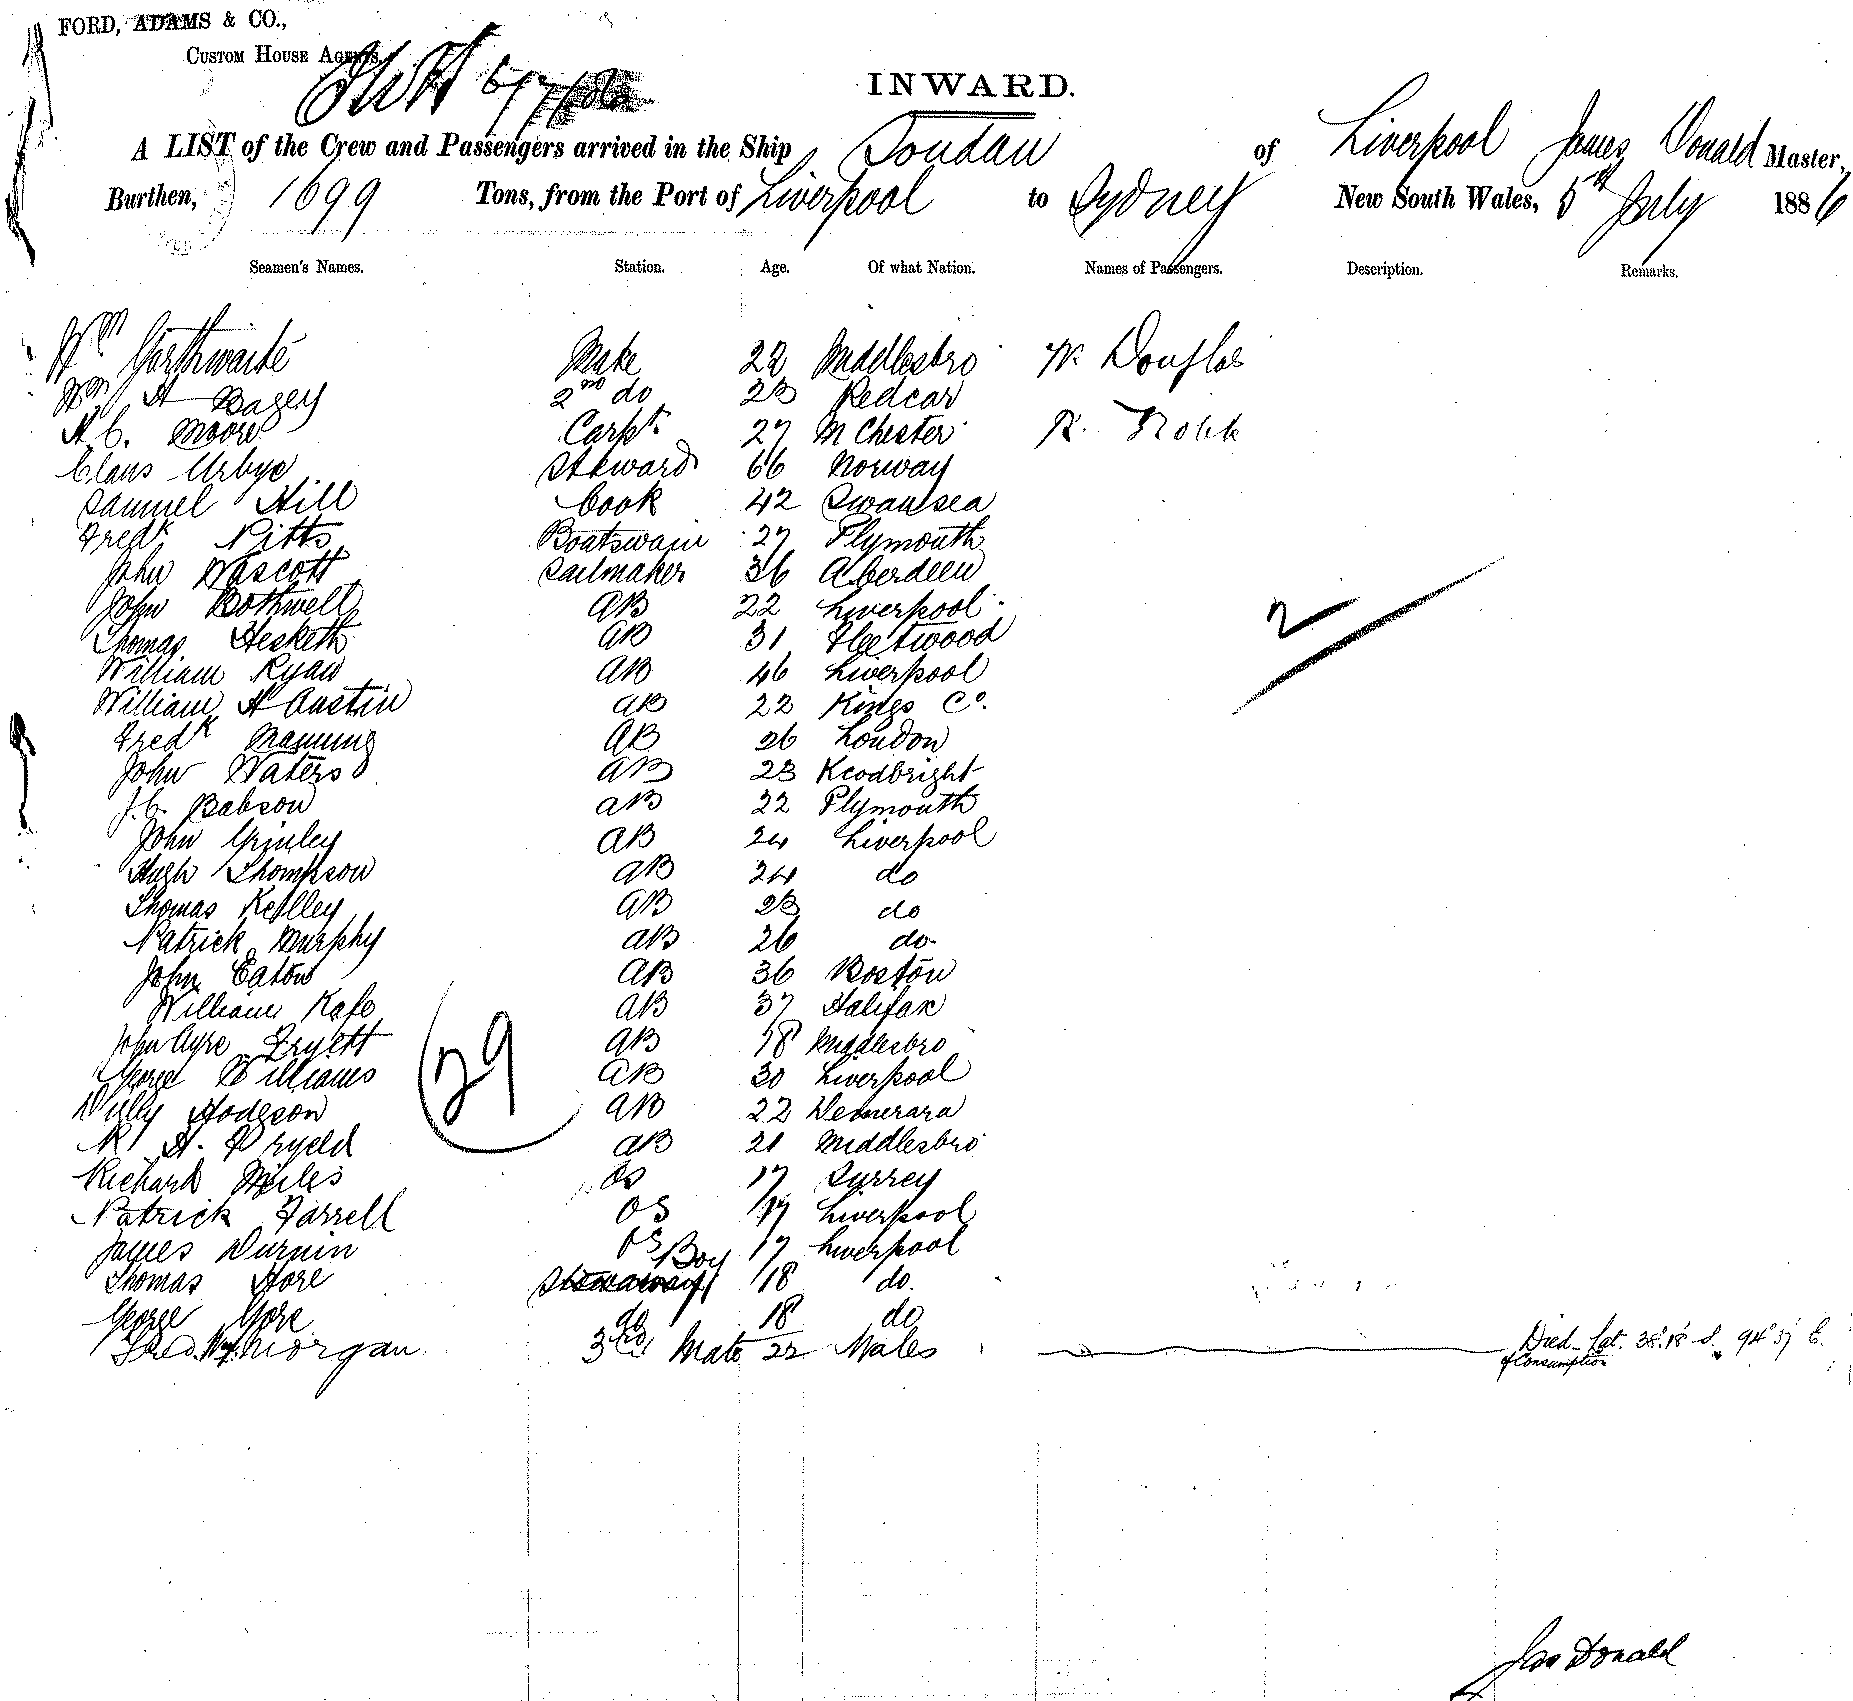 FORD, ADAMS & CO.,
CUSTOM HOUSE AGENTS.
INWARD.
A LIST of the Crew and Passengers arrived in the Ship Soudan of Liverpool James Donald Master,
Burthen, 1699 Tons, from the Port of Liverpool to Sydney New South Wales, 5th July 1886
Seamen's Names. Station. Age. Of what Nation. Names of Passengers. Description. Remarks.
Wm Garthwaite Mate 22 Middlesbro W. Douglas
Wm H 2nd do 23 Redcar
H C. Moore Carpt. 27 MChester R.
Claus Steward 66 Norway
Samuel Hill Cook 42 Swansea
Fredk Pitts Boatswain 27 Plymouth
John Wascott Sailmaker 36 Aberdeen
John Bothwell AB 22 Liverpool
Thomas Hesketh AB 31 Fleetwood
William Ryan AB 46 Liverpool
William H Austin AB 22 Kings Co.
Fredk Manning AB 26 London
John Waters AB 23
J.C. Babson AB 22 Plymouth
John Grinley AB 24 Liverpool
Hugh Thompson AB 24 do
Thomas Kelley AB 23 do
Patrick Murphy AB 26 do
John Eaton AB 36 Boston
William AB 37 Halifax
John Ayre AB 18 Middlesbro
George Williams AB 30 Liverpool
Willy Hodgson AB 22 Demerara
H. AB 21 Middlesbro
Richard Miles OS 17 Surrey
Patrick Farrell OS 19 Liverpool
James Durnin OS 17 Liverpool
Thomas Hore Boy 18 do.
George Gore do 18 do
Morgan 3rd Mate 22 Wales Died Lat. 38.18 S. 94° 37' E.
of Consumption
2
29
Jas Donald